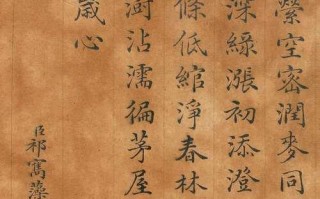 縈空密潤麥同
深綠漲初添澄
條低綰淨春林
廚沾濡徧茅屋
箴心
臣祁寯藻